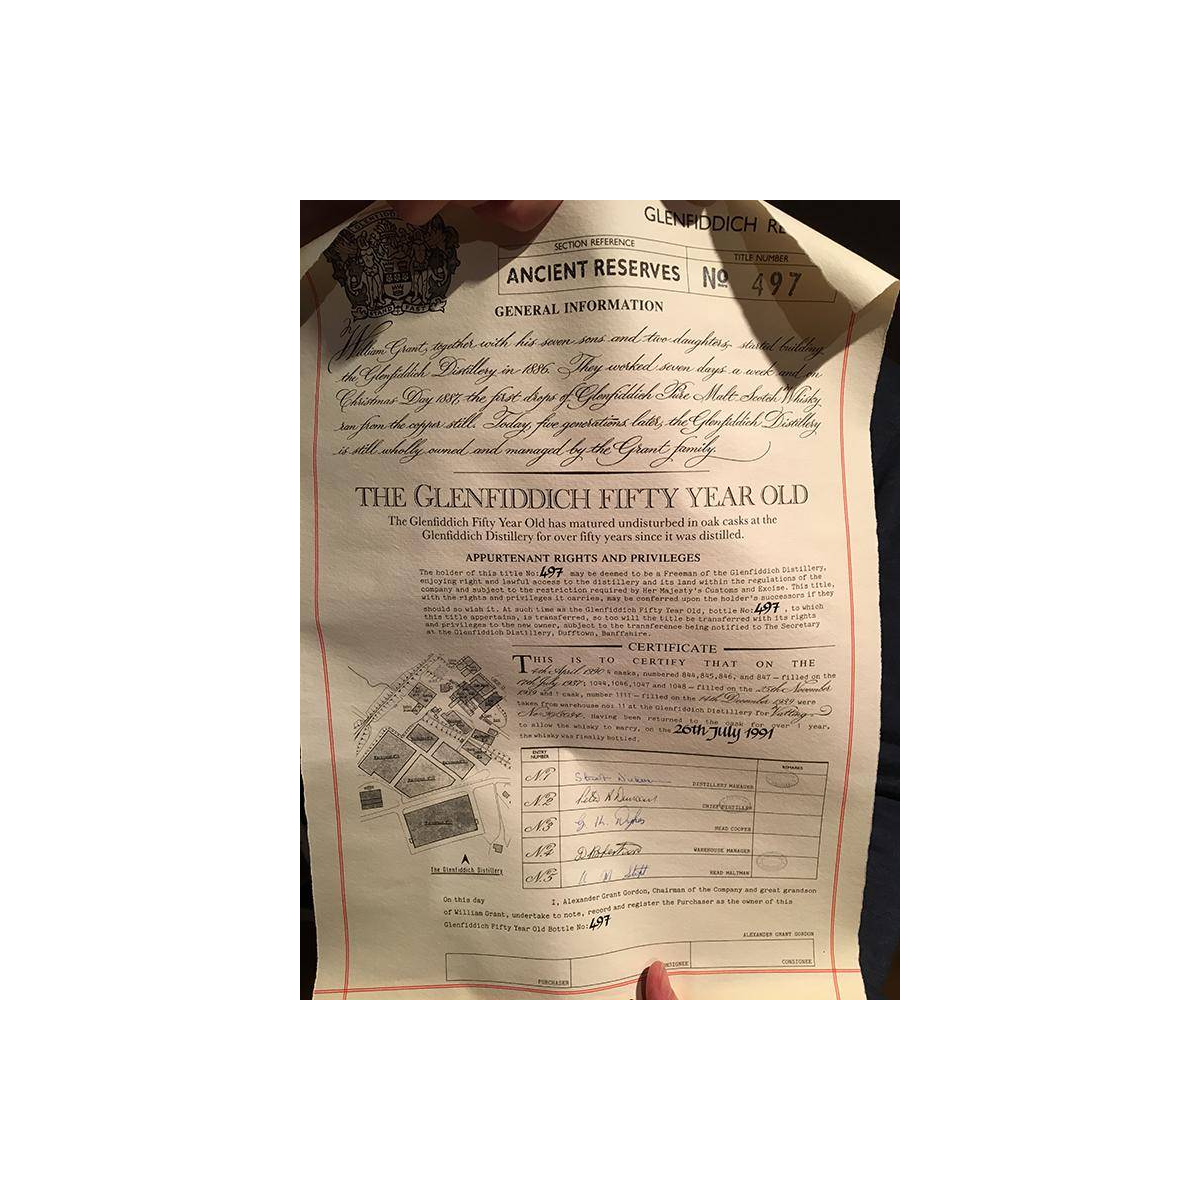 GLENFIDDICH RE
SECTION REFERENCE
TITLE NUMBER
ANCIENT RESERVES
No 497
STAND FAST
GENERAL INFORMATION
William Grant, together with his seven sons and two daughters, started building
the Glenfiddich Distillery in 1886. They worked seven days a week and on
Christmas Day 1887, the first drops of Glenfiddich Pure Malt Scotch Whisky
ran from the copper still. Today, five generations later, the Glenfiddich Distillery
is still wholly owned and managed by the Grant family.
THE GLENFIDDICH FIFTY YEAR OLD
The Glenfiddich Fifty Year Old has matured undisturbed in oak casks at the
Glenfiddich Distillery for over fifty years since it was distilled.
APPURTENANT RIGHTS AND PRIVILEGES
The holder of this title No: 497 may be deemed to be a Freeman of the Glenfiddich Distillery,
enjoying right and lawful access to the distillery and its land within the regulations of the
company and subject to the restriction required by Her Majesty's Customs and Excise. This title,
with the rights and privileges it carries, may be conferred upon the holder's successors if they
should so wish it. At such time as the Glenfiddich Fifty Year Old, bottle No: 497, to which
this title appertains, is transferred, so too will the title be transferred with its rights
and privileges to the new owner, subject to the transference being notified to The Secretary
at the Glenfiddich Distillery, Dufftown, Banffshire.
CERTIFICATE
THIS IS TO CERTIFY THAT ON THE
4th April 1990 4 casks, numbered 844,845,846, and 847 - filled on the
17th July 1937; 1044,1046,1047 and 1048 - filled on the 25th November
1939 and 1 cask, number 1117 - filled on the 14th December 1939 were
taken from warehouse no: 11 at the Glenfiddich Distillery for Vatting
Having been returned to the cask for over 1 year,
to allow the whisky to marry, on the 26th July 1991
the whisky was finally bottled.
ENTRY NUMBER
REMARKS
No 1
DISTILLERY MANAGER
No 2
CHIEF DISTILLER
No 3
HEAD COOPER
No 4
D Robertson
WAREHOUSE MANAGER
No 5
HEAD MALTMAN
The Glenfiddich Distillery
On this day I, Alexander Grant Gordon, Chairman of the Company and great grandson
of William Grant, undertake to note, record and register the Purchaser as the owner of this
Glenfiddich Fifty Year Old Bottle No: 497
ALEXANDER GRANT GORDON
PURCHASER
NSIGNEE
CONSIGNEE